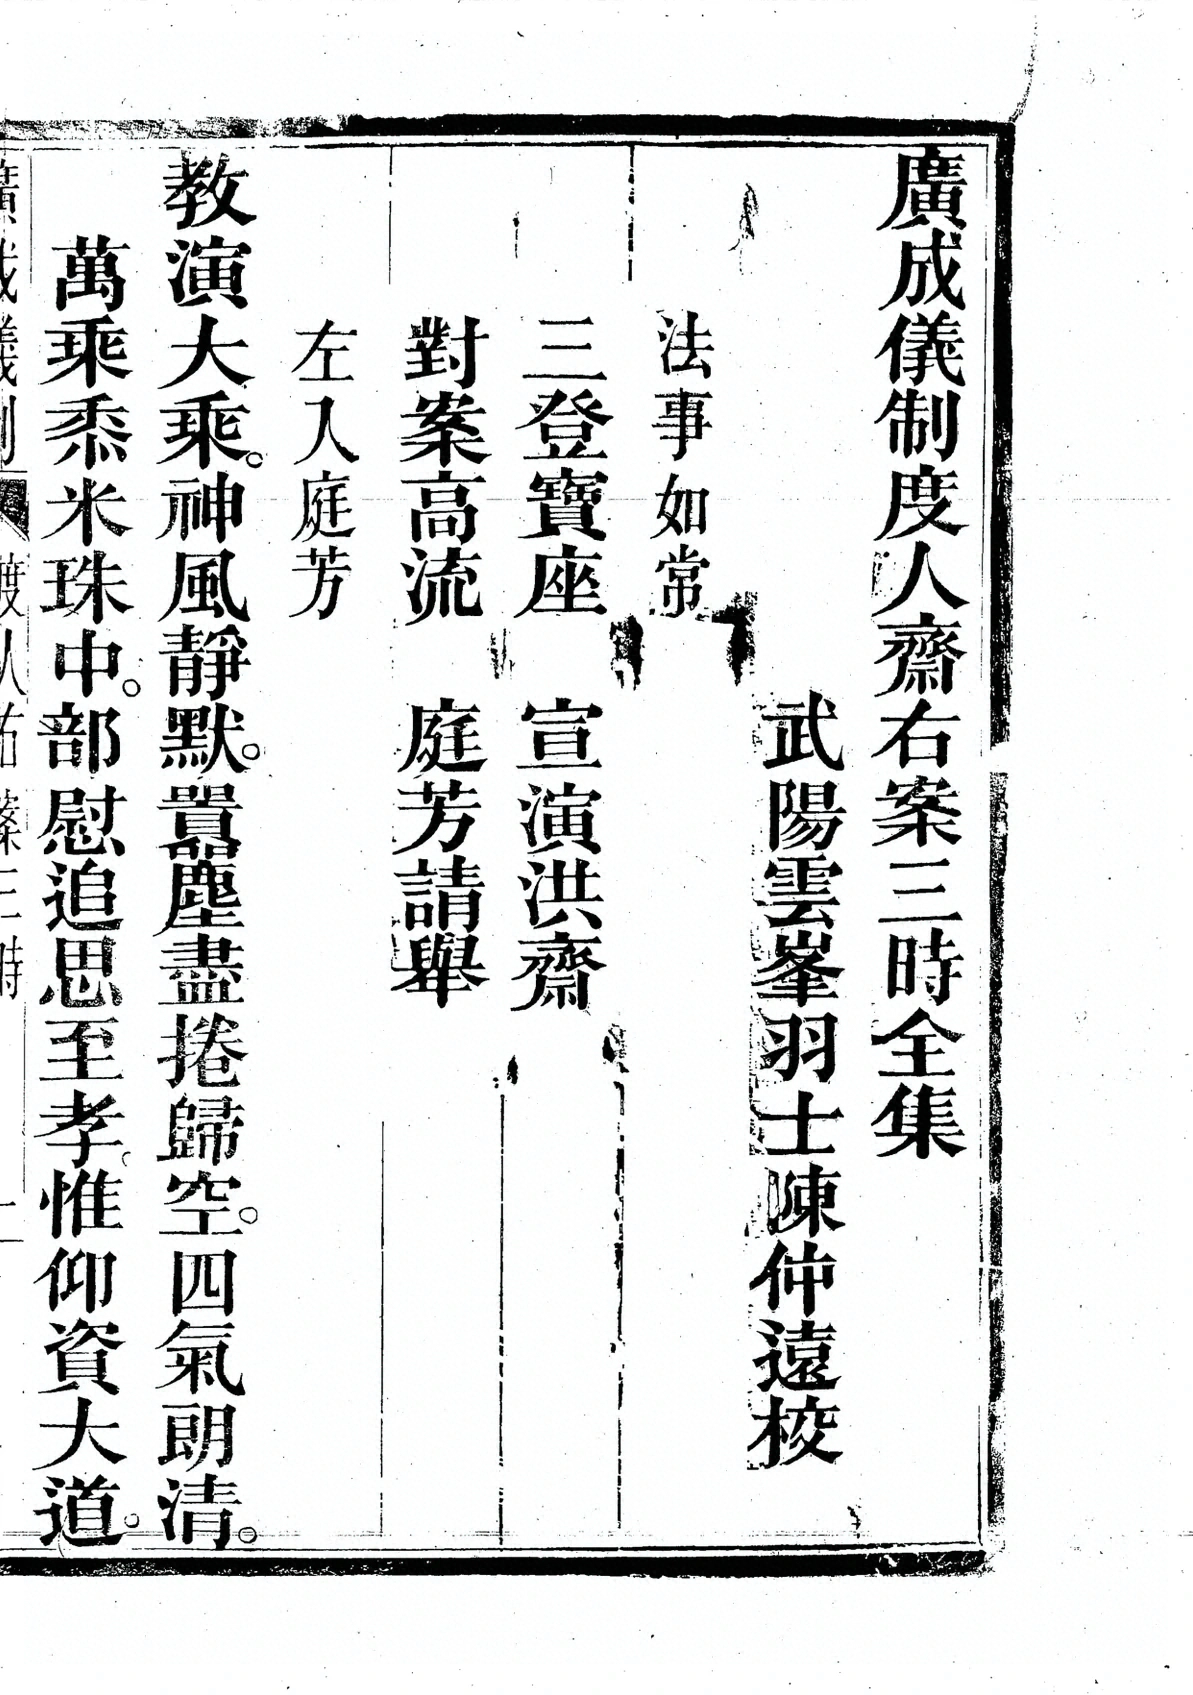 廣成儀制度人齋右案三時全集
武陽雲峯羽士陳仲遠校
法事如常
三登寶座　宣演洪齋
對案高流　庭芳請舉
左入庭芳
教演大乘。神風靜默。囂塵盡捲歸空。四氣朗清。
萬乘黍米珠中。部慰追思至孝。惟仰資大道。
廣成儀制　度人右案三時